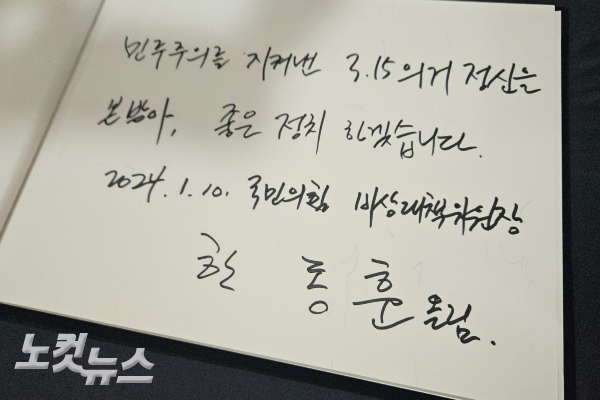 민주주의를 지켜낸 3.15의거 정신을
본받아, 좋은 정치 하겠습니다.
2024. 1. 10. 국민의힘 비상대책위원장
한동훈 올림.
노컷뉴스